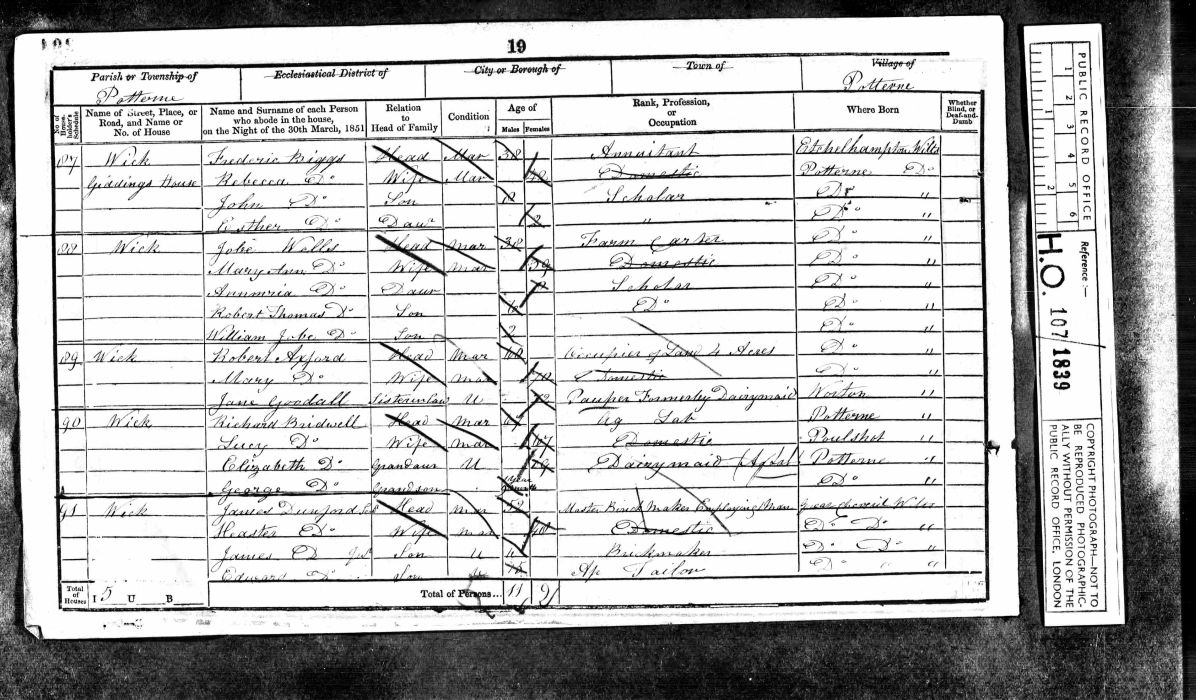 19
Parish or Township of
Ecclesiastical District of
City or Borough of
Town of
Village of
Potterne
Potterne
No. of House-holder's Schedule
Name of Street, Place, or Road, and Name or No. of House
Name and Surname of each Person who abode in the house, on the Night of the 30th March, 1851
Relation to Head of Family
Condition
Age of
Males
Females
Rank, Profession, or Occupation
Where Born
Whether Blind, or Deaf-and-Dumb
87 Wick Frederic Biggs Head Mar 38 Annuitant Etchelhampton Wilts
Giddings House Rebecca Do Wife Mar Domestic Potterne Do
John Do Son Scholar Do "
Esther Do Daur 12 " Do "
88 Wick Jobe Wells Head Mar 38 Farm Carter Do "
Mary Ann Do Wife Mar 39 Domestic Do "
Annmria Do Daur Scholar Do "
Robert Thomas Do Son Do Do "
William Jobe Do Son 2 Do "
89 Wick Robert Axford Head Mar Occupier of Land 4 Acres Do "
Mary Do Wife Mar 70 Domestic Do "
Jane Goodall Sister in Law U 72 Pauper Formerly Dairymaid Norton "
90 Wick Richard Bridwell Head Mar 67 Ag Lab Potterne "
Lucy Do Wife Mar 67 Domestic Poulshot "
Elizabeth Do Grandaur U 19 Dairymaid Potterne "
George Do Grandson Do "
91 Wick James Dunford Head Mar Master Brick Maker Employing Man Wilts
Heaster Do Wife Mar Domestic Do Do "
James Do Son U Brickmaker Do Do "
Edward Do Son Ap Tailor Do " "
Total of Houses
I 5 U B
Total of Persons... 11 9
PUBLIC RECORD OFFICE
1 2 3 4 5 6
1 2
Reference :-
H.O. 107/1839
COPYRIGHT PHOTOGRAPH—NOT TO BE REPRODUCED PHOTOGRAPHICALLY WITHOUT PERMISSION OF THE PUBLIC RECORD OFFICE, LONDON